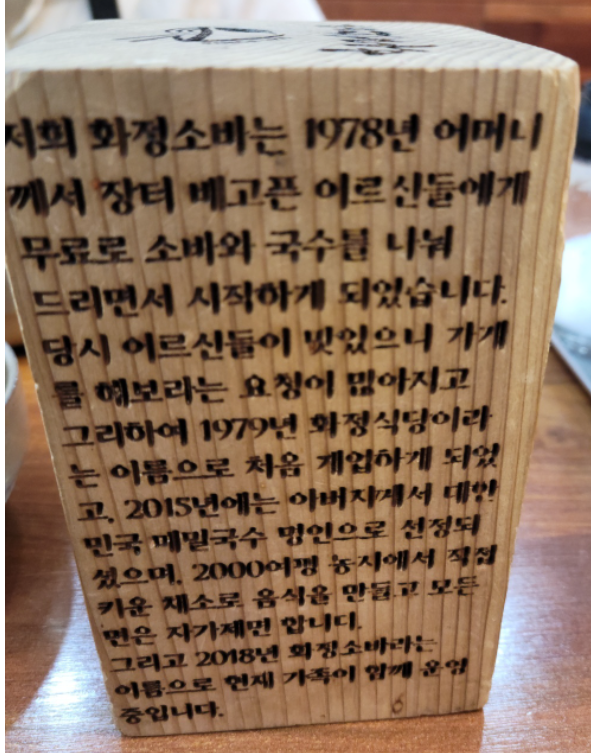 저희 화정소바는 1978년 어머니
께서 장터 배고픈 어르신들에게
무료로 소바와 국수를 나눠
드리면서 시작하게 되었습니다.
당시 어르신들이 맛있으니 가게
를 해보라는 요청이 많아지고
그리하여 1979년 화정식당이라
는 이름으로 처음 개업하게 되었
고, 2015년에는 아버지께서 대한
민국 메밀국수 명인으로 선정되
셨으며, 2000여평 농지에서 직접
키운 채소로 음식을 만들고 모든
면은 자가제면 합니다.
그리고 2018년 화정소바라는
이름으로 현재 가족이 함께 운영
중입니다.